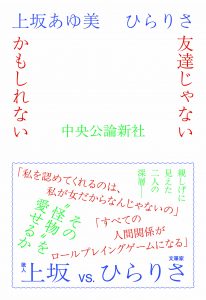 上坂あゆ美 ひらりさ
友達じゃない
かもしれない
中央公論新社
親しげに
見えた
二人の
深層!
「私を認めてくれるのは、
私が女だからなんじゃないの」
その
“怪物”を
愛せるか
「すべての
人間関係が
ロールプレイングゲームになる」
歌人
上坂 vs. ひらりさ
文筆家